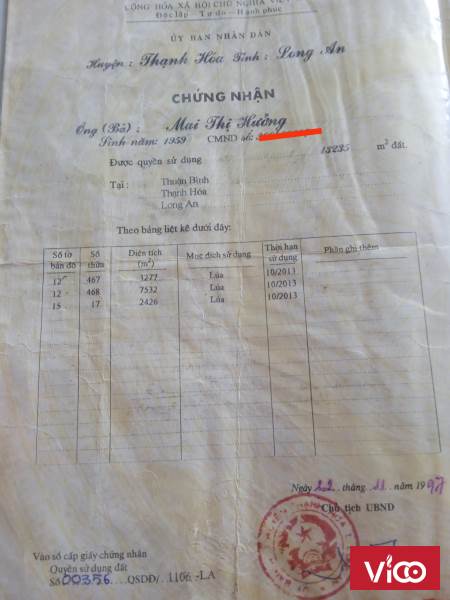 CỘNG HÒA XÃ HỘI CHỦ NGHĨA VIỆT
Độc lập - Tự do - Hạnh phúc
ỦY BAN NHÂN DÂN
Huyện : Thạnh Hóa Tỉnh : Long An
CHỨNG NHẬN
Ông (Bà) : Mai Thị Hưởng
Sinh năm: 1959 CMND số:
Được quyền sử dụng 13235 m² đất.
Tại : Thuận Bình
Thạnh Hóa
Long An
Theo bảng liệt kê dưới đây:
Số tờ bản đồ Số thửa Diện tích (m²) Mục đích sử dụng Thời hạn sử dụng Phần ghi thêm
12 467 3277 Lúa 10/2013
12 468 7532 Lúa 10/2013
15 17 2426 Lúa 10/2013
Ngày 22 tháng 11 năm 1997
Chủ tịch UBND
Vào sổ cấp giấy chứng nhận
Quyền sử dụng đất
Số 00356 QSDĐ/ 1106 -LA
Vico